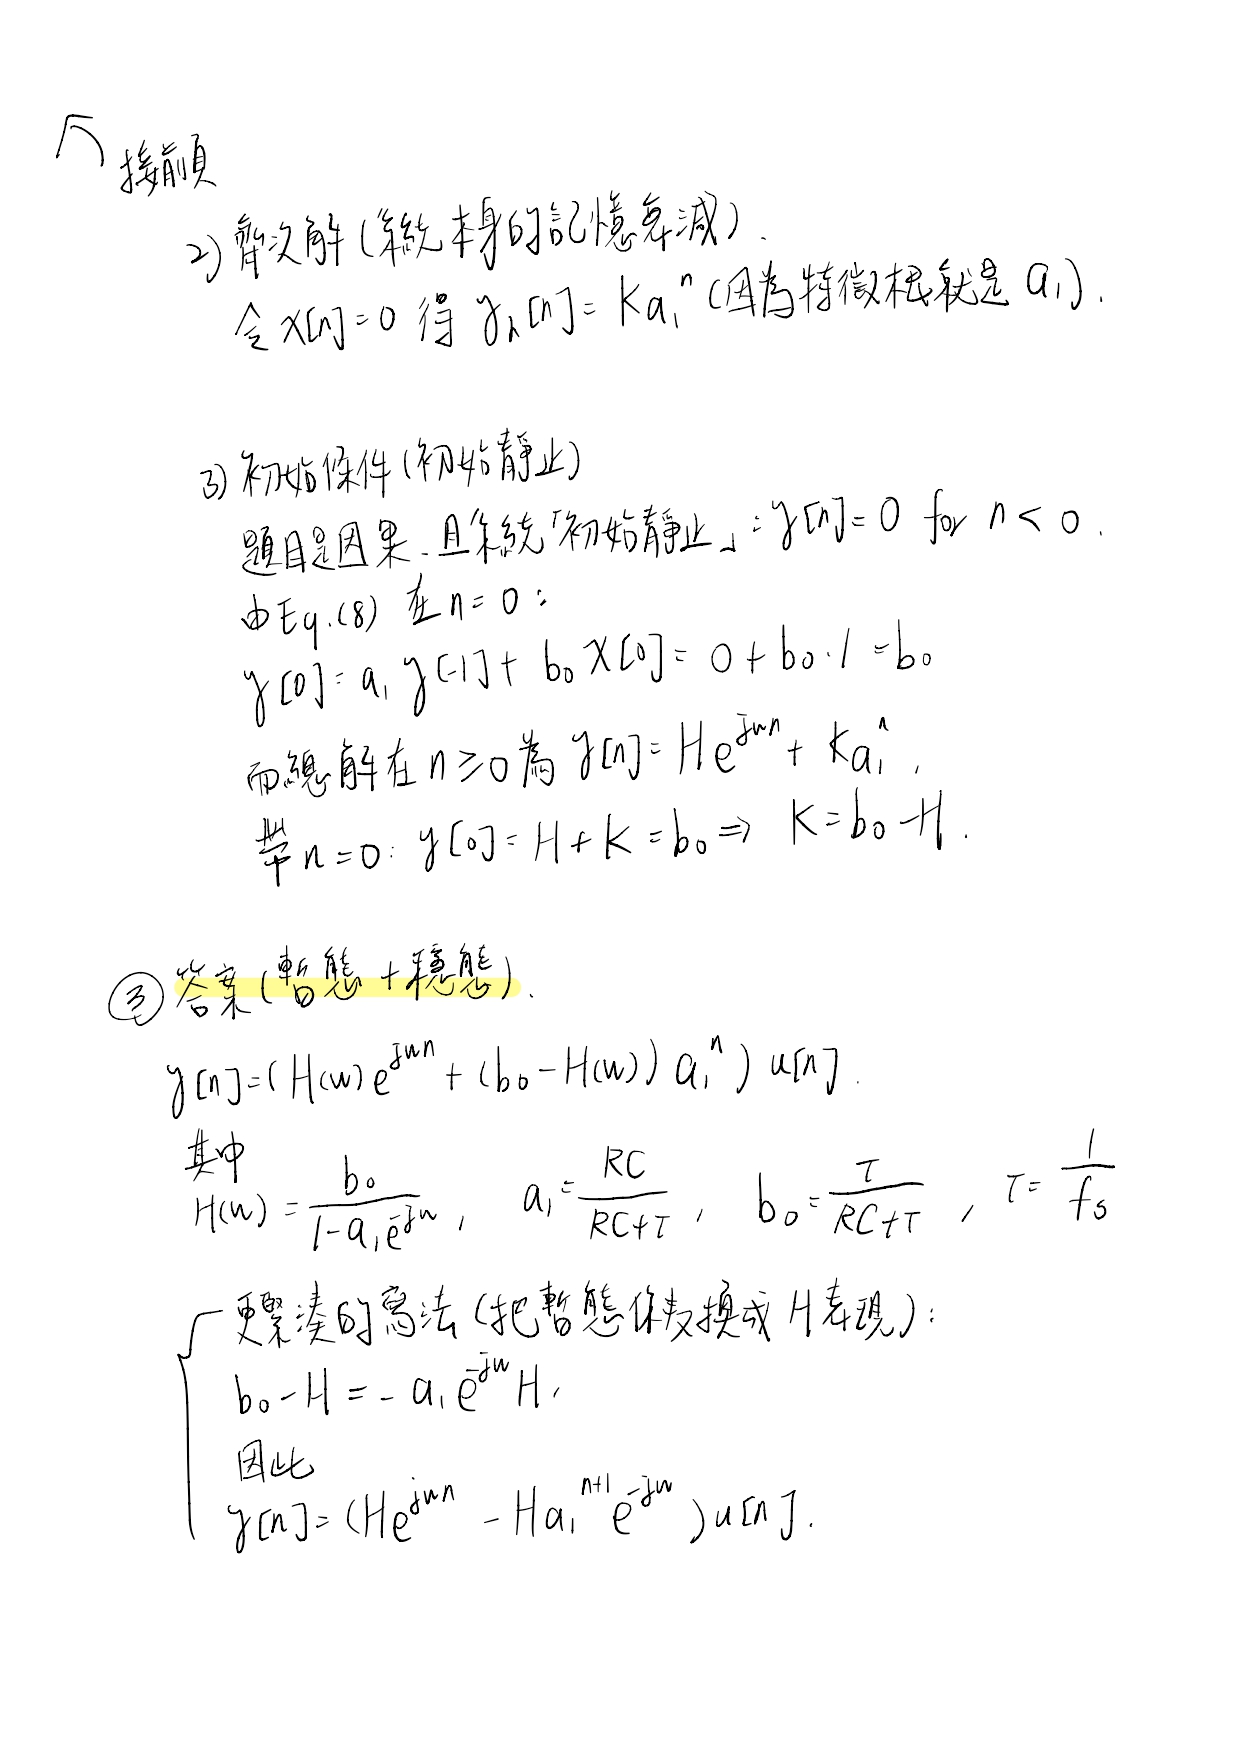 接前頁
2) 齊次解 (系統本身的記憶衰減).
令 x[n]=0 得 y_h[n]= K a₁ⁿ (因為特徵根就是 a₁).
3) 初始條件 (初始靜止)
題目是因果、且系統「初始靜止」: y[n]=0 for n<0.
由 Eq.(8) 在 n=0 :
y[0]= a₁ y[-1]+ b₀ x[0]= 0+b₀·1 =b₀
而總解在 n≥0 為 y[n]= He^{jwn}+ Ka₁ⁿ,
帶 n=0: y[0]= H+K =b₀ ⇒ K=b₀-H.
③ 答案 (暫態+穩態).
y[n]=(H(w)e^{jwn}+(b₀-H(w)) a₁ⁿ) u[n].
其中
H(w)= b₀/(1-a₁e^{-jw}), a₁= RC/(RC+T), b₀= T/(RC+T), T= 1/fs
更緊湊的寫法 (把暫態係數換成 H 表現):
b₀-H=-a₁e^{-jw}H,
因此
y[n]=(He^{jwn} -Ha₁^{n+1}e^{-jw})u[n].